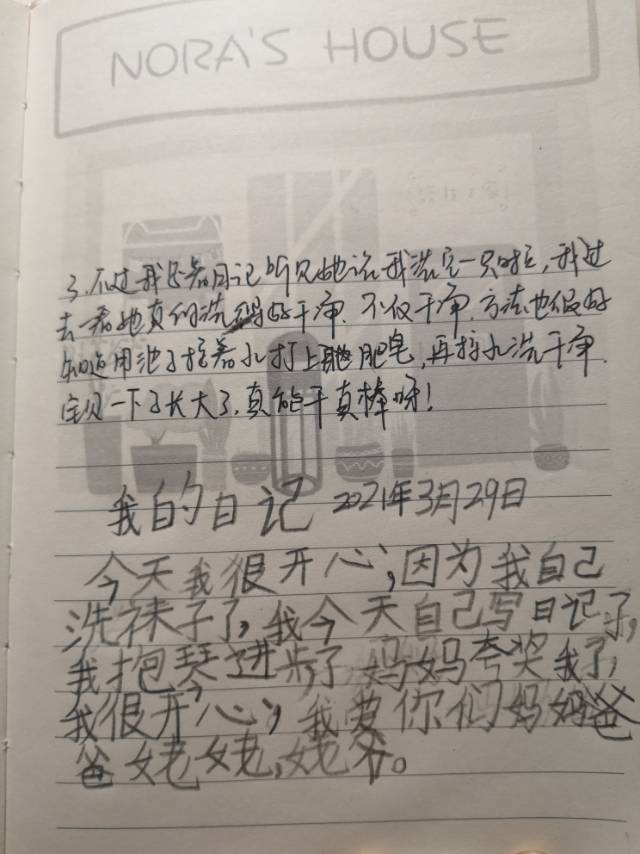 NORA'S HOUSE
了.不过我还在日记听见她说我洗完一只啦,我过
去一看她真的洗得好干净.不仅干净.方法也很好
知道用池子接着水打上肥皂,再接水洗干净.
宝贝一下子长大了.真能干真棒呀!
我的日记 2021年3月29日
今天我很开心,因为我自己
洗袜子了,我今天自己写日记了,
我抱琴进步了,妈妈夸奖我了,
我很开心,我爱你们妈妈爸
爸姥姥,姥爷。